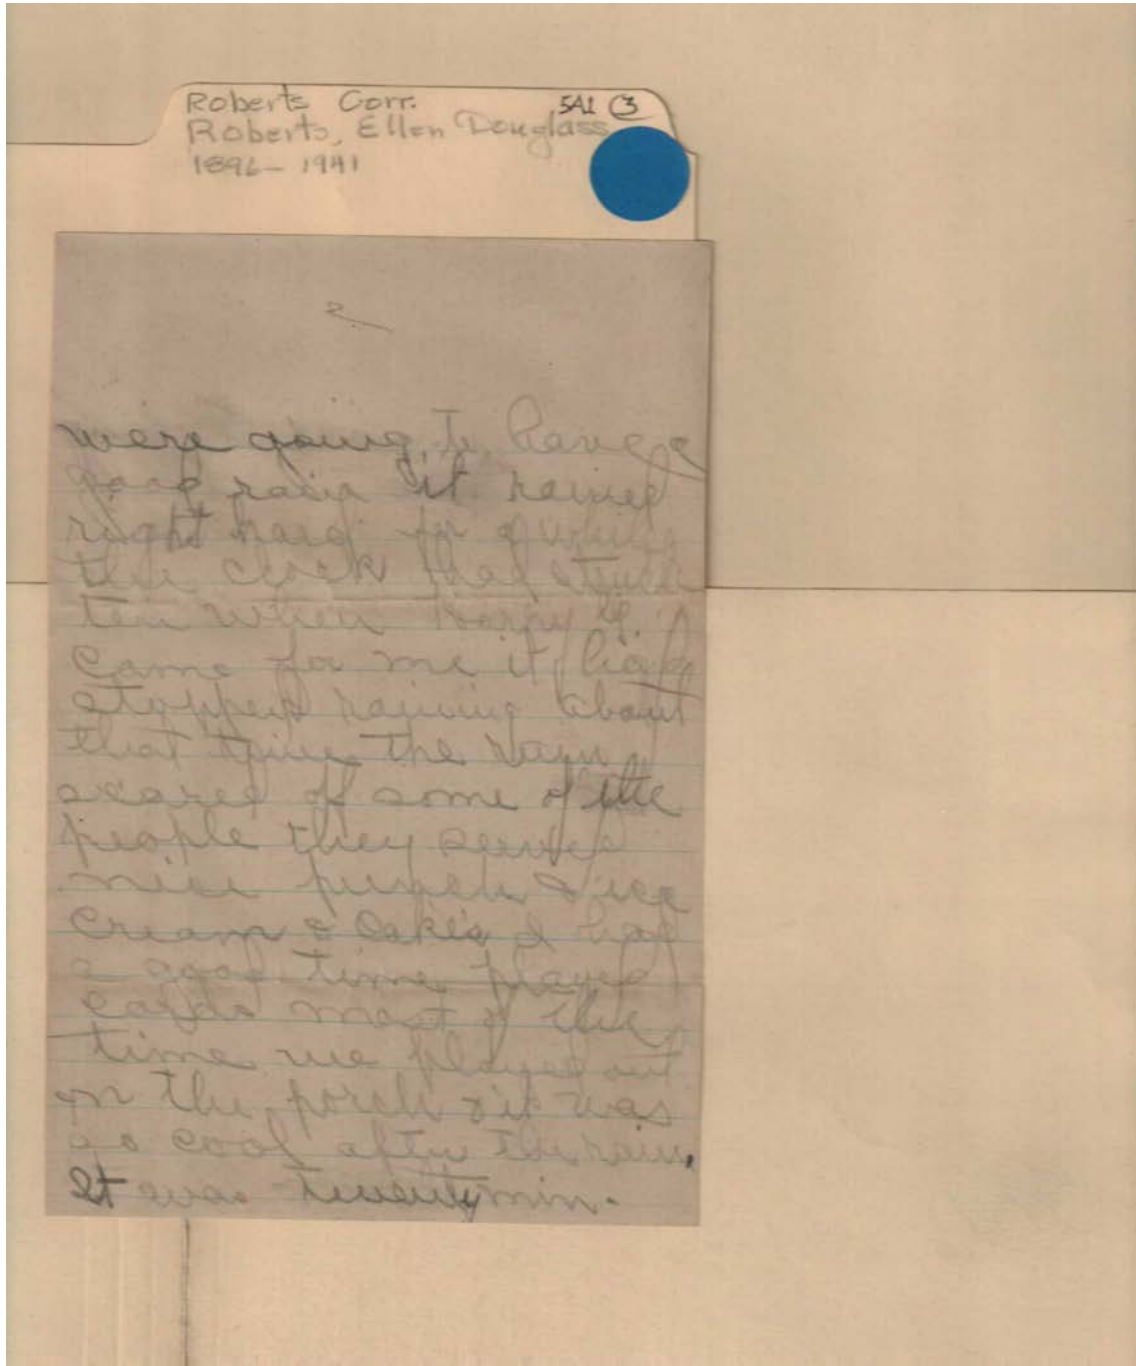 Roberts Corr. 5A1 3
Roberts, Ellen Douglass
1896-1941
2
were going to have a
good rain it rained
right hard for a while
the clock had struck
ten when Harry
came for me it had
stopped raining about
that time the rain
scared off some of the
people they served
nice punch & ice
cream & cakes I had
a good time played
cards most of the
time we played out
on the porch & it was
so cool after the rain.
It was twenty min.